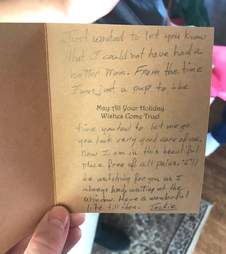 Just wanted to let you know
that I could not have had a
better mom. From the time
I was just a pup to the
May All Your Holiday
Wishes Come True!
time you had to let me go
you took very good care of me,
now I am in this beautiful
place free of all pains. I'll
be watching for you as I
always had, waiting at the
window. Have a wonderful
life till then.